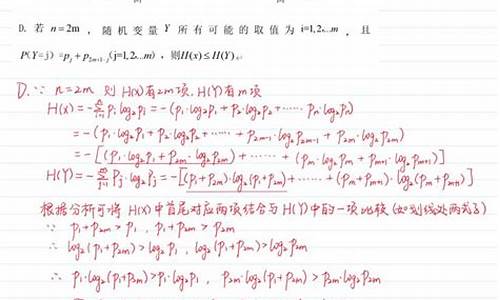 D. 若 n=2m ，随机变量 Y 所有可能的取值为 i=1,2,...m ，且
P(Y=j) =p_j+p_{2m+1-j}(j=1,2,...m) ，则H(x)≤H(Y) 。
D. ∵ n=2m 则 H(x)有2m项, H(Y)有m项
H(x)=-Σ P_i log₂P_i = -(P₁·log₂P₁+P₂·log₂P₂+······Pₙ·log₂Pₙ)
=-(P₁·log₂P₁+P₂·log₂P₂+······+P_{2m-1}·log₂P_{2m-1}+P_{2m}·log₂P_{2m})
=-[(P₁·log₂P₁+P_{2m}·log₂P_{2m})+······+(P_m·log₂P_m+P_{m+1}·log₂P_{m+1})]
H(Y)=-Σ P_j·log₂P_j=-[(P₁+P_{2m})·log₂(P₁+P_{2m})+······+(P_m+P_{m+1})·log₂(P_m+P_{m+1})]
根据分析可将 H(x)中首尾对应两项结合与H(Y)中的一项比较(如划线处两式子)
∵ P₁+P_{2m}>P₁ , P₁+P_{2m}>P_{2m}
∴ log₂(P₁+P_{2m})>log₂P₁ , log₂(P₁+P_{2m})>log₂P_{2m}
∴ P₁·log₂(P₁+P_{2m})>P₁·log₂P₁ , P_{2m}·log₂(P₁+P_{2m})>P_{2m}·log₂P_{2m}